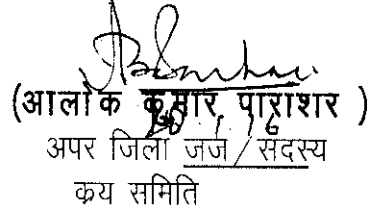 (आलोक कुमार पाराशर )
अपर जिला जज / सदस्य
क्रय समिति